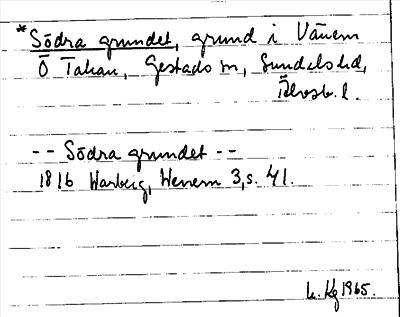 *Södra grundet, grund i Vänern
Ö Takan, Gestads sn, Sundals hd,
Älvsb. l.
-- Södra grundet --
1816 Warberg, Wenern 3, s. 41.
1965.